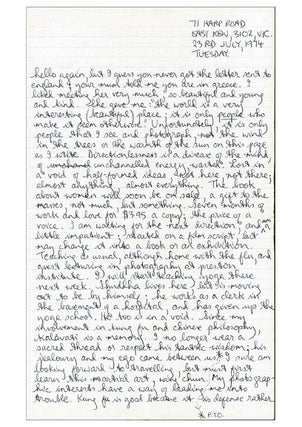 71 HARP ROAD
EAST KEW, 3102, VIC.
23 RD JULY, 1974
TUESDAY.
hello again, but I guess you never got the letter sent to
england & your mum told me you are in greece. I
liked meeting her very much, so beautiful and young
and kind. She gave me: 'the world is a very
interesting (beautiful) place; it is only people who
make it seem otherwise.' Unfortunately it is only
people that I see and photograph, not the wind
in the trees or the warmth of the sun on this page
as I write. Directionlessness is a disease of the mind
of unchannelled energy
a void of half-formed ideas, not here, not there;
almost anything, almost everything. The book
about women will soon be on sale, a gift to the
masses; not much, but something. Seven months of
work and love for $3.95 a copy; the price of a
voice. I am waiting for the next direction, and a
little impatient; started on a film script, but
may change it into a book or an exhibition.
Teaching as usual, although home with the flu, and
guest lecturing in photography at preston
institute. I will start teaching yoga there
next week. Shuddha lives here, but is moving
out to be by himself; he works as a clerk in
the basement of a hospital, and has given up the
yoga school. He too is in a void. Since my
involvement in kung fu and chinese philosophy,
is a memory. I no longer wear a
sacred thread or respect his tantric wisdom; his
jealousy and my ego came between us. I am
looking forward to travelling, but must first
learn this martial art, wing chun. My photograp-
hic interests have a way of leading me into
trouble. Kung fu is good because it is defence rather
P.T.O.